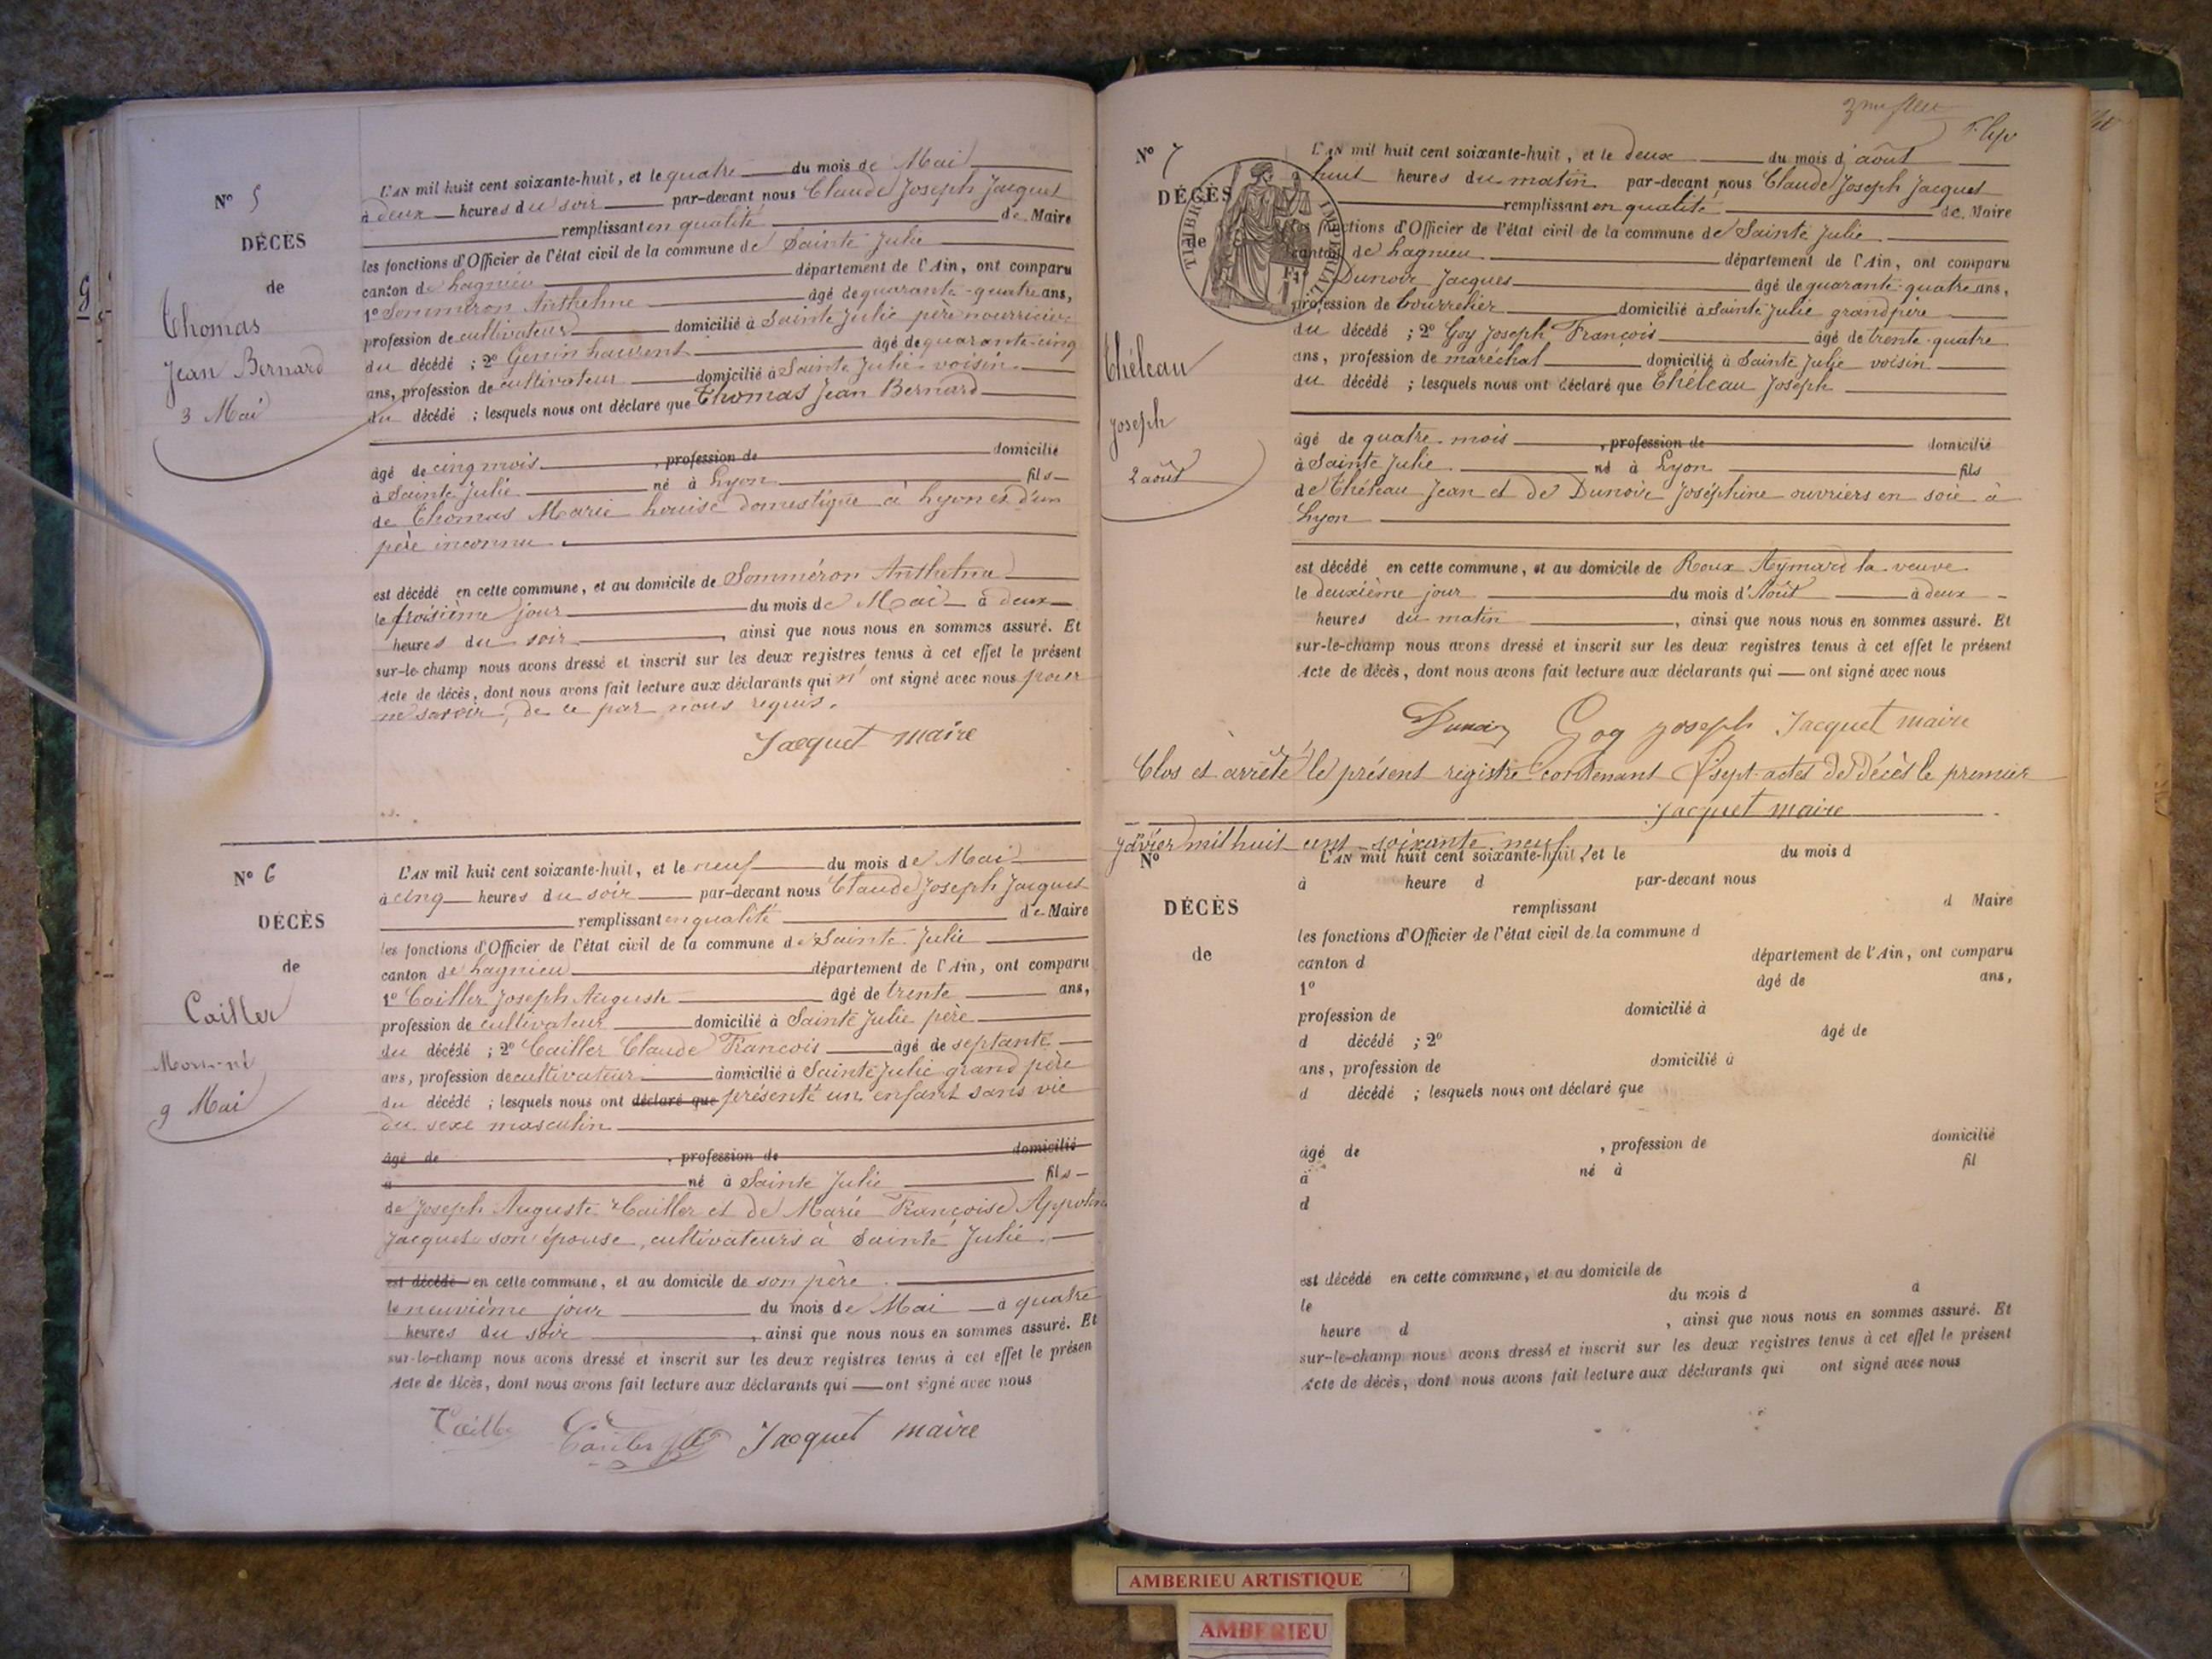 N° 5
DÉCÈS
de
Thomas
Jean Bernard
3 Mai
L'AN mil huit cent soixante-huit, et le quatre du mois de Mai
à deux heures du soir par-devant nous Claude Joseph Jacquet
remplissant en qualité de Maire
les fonctions d'Officier de l'état civil de la commune de Sainte Julie
canton de Lagnieu département de l'Ain, ont comparu
1° Somméron Anthelme âgé de quarante-quatre ans,
profession de cultivateur domicilié à Sainte Julie père nourricier
du décédé ; 2° Genin Laurent âgé de quarante-cinq
ans, profession de cultivateur domicilié à Sainte Julie voisin
du décédé ; lesquels nous ont déclaré que Thomas Jean Bernard
âgé de cinq mois , profession de domicilié
à Sainte Julie né à Lyon fils
de Thomas Marie Louise domestique à Lyon et d'un
père inconnu.
est décédé en cette commune, et au domicile de Somméron Anthelme
le troisième jour du mois de Mai à deux
heures du soir , ainsi que nous nous en sommes assuré. Et
sur-le-champ nous avons dressé et inscrit sur les deux registres tenus à cet effet le présent
Acte de décès, dont nous avons fait lecture aux déclarants qui n' ont signé avec nous pour
ne savoir, de ce par nous requis.
Jacquet maire
N° 6
DÉCÈS
de
Cailler
Mort-né
9 Mai
L'AN mil huit cent soixante-huit, et le neuf du mois de Mai
à cinq heures du soir par-devant nous Claude Joseph Jacquet
remplissant en qualité de Maire
les fonctions d'Officier de l'état civil de la commune de Sainte Julie
canton de Lagnieu département de l'Ain, ont comparu
1° Cailler Joseph Auguste âgé de trente ans,
profession de cultivateur domicilié à Sainte Julie père
du décédé ; 2° Cailler Claude François âgé de septante
ans, profession de cultivateur domicilié à Sainte Julie grand père
du décédé ; lesquels nous ont déclaré que présenté un enfant sans vie
du sexe masculin
âgé de , profession de domicilié
à né à Sainte Julie fils
de Joseph Auguste Cailler et de Marie Françoise
Jacquet son épouse, cultivateurs à Sainte Julie.
est décédé en cette commune, et au domicile de son père.
le neuvième jour du mois de Mai à quatre
heures du soir , ainsi que nous nous en sommes assuré. Et
sur-le-champ nous avons dressé et inscrit sur les deux registres tenus à cet effet le présen
Acte de décès, dont nous avons fait lecture aux déclarants qui ont signé avec nous
Jacquet maire
N° 7
DÉCÈS
de
TIMBRE IMPERIAL
Théleau
Joseph
2 août
L'AN mil huit cent soixante-huit, et le deux du mois d'août
à huit heures du matin par-devant nous Claude Joseph Jacquet
remplissant en qualité de Maire
les fonctions d'Officier de l'état civil de la commune de Sainte Julie
canton de Lagnieu département de l'Ain, ont comparu
1° Dunoir Jacques âgé de quarante-quatre ans,
profession de bourrelier domicilié à Sainte Julie grandpère
du décédé ; 2° Goy Joseph François âgé de trente-quatre
ans, profession de maréchal domicilié à Sainte Julie voisin
du décédé ; lesquels nous ont déclaré que Théleau Joseph
âgé de quatre mois , profession de domicilié
à Sainte Julie né à Lyon fils
de Théleau Jean et de Dunoir Joséphine ouvriers en soie à
Lyon
est décédé en cette commune, et au domicile de Roux Aymard la veuve
le deuxième jour du mois d'Août à deux
heures du matin , ainsi que nous nous en sommes assuré. Et
sur-le-champ nous avons dressé et inscrit sur les deux registres tenus à cet effet le présent
Acte de décès, dont nous avons fait lecture aux déclarants qui ont signé avec nous
Goy Joseph Jacquet maire
Clos et arrêté le présent registre contenant sept actes de décès le premier
Jacquet maire
javier mil huit cent soixante neuf
N°
DÉCÈS
de
L'AN mil huit cent soixante-huit, et le du mois d
à heure d par-devant nous
remplissant d Maire
les fonctions d'Officier de l'état civil de la commune d
canton d département de l'Ain, ont comparu
1° âgé de ans,
profession de domicilié à
d décédé ; 2° âgé de
ans, profession de domicilié à
d décédé ; lesquels nous ont déclaré que
âgé de , profession de domicilié
à né à fil
d
est décédé en cette commune, et au domicile de
le du mois d à
heure d , ainsi que nous nous en sommes assuré. Et
sur-le-champ nous avons dressé et inscrit sur les deux registres tenus à cet effet le présent
Acte de décès, dont nous avons fait lecture aux déclarants qui ont signé avec nous
AMBERIEU ARTISTIQUE
AMBERIEU